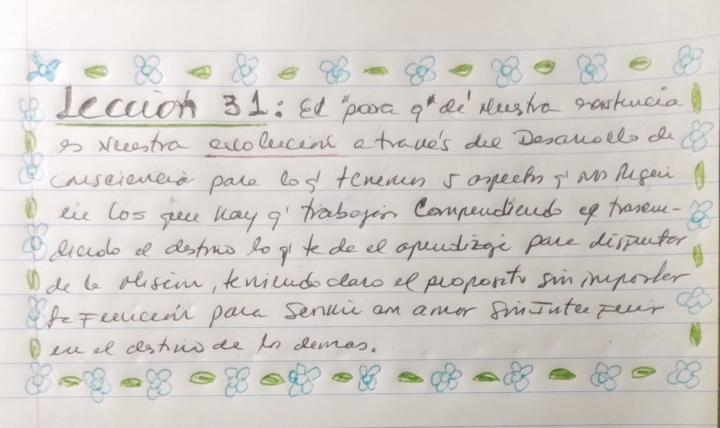 Lección 31: El "para q" de Nuestra existencia
es Nuestra evolución a través del Desarrollo de
consciencia para lo q' tenemos 5 aspectos q' nos Rigen
en los que Hay q' trabajar Comprendiendo y trascen-
diendo el destino lo q' te da el aprendizaje para disfrutar
de la Misión, teniendo claro el proposito sin importar
la Función para Servir con amor Sin Interferir
en el destino de los demas.